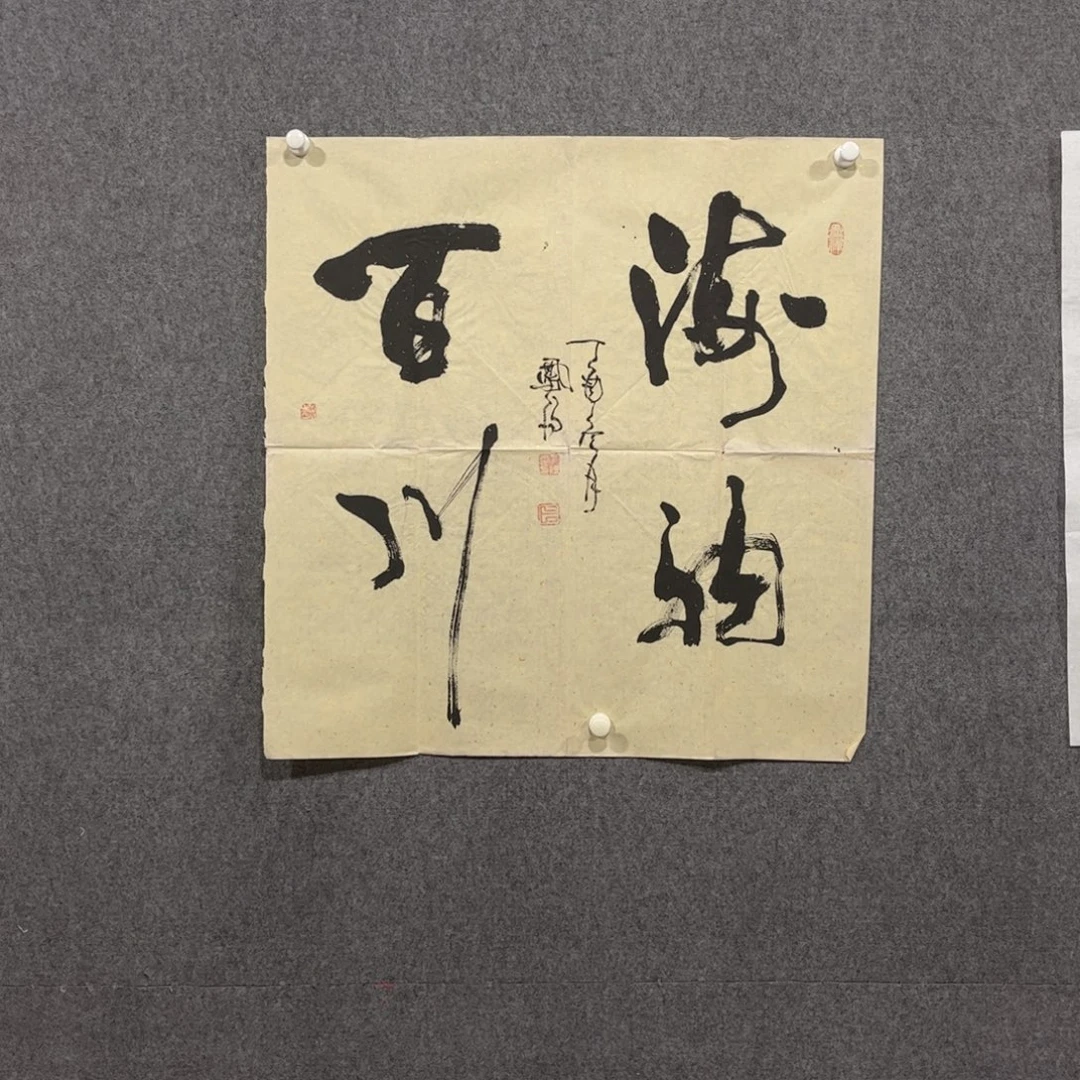 海納
百川
丁酉
月